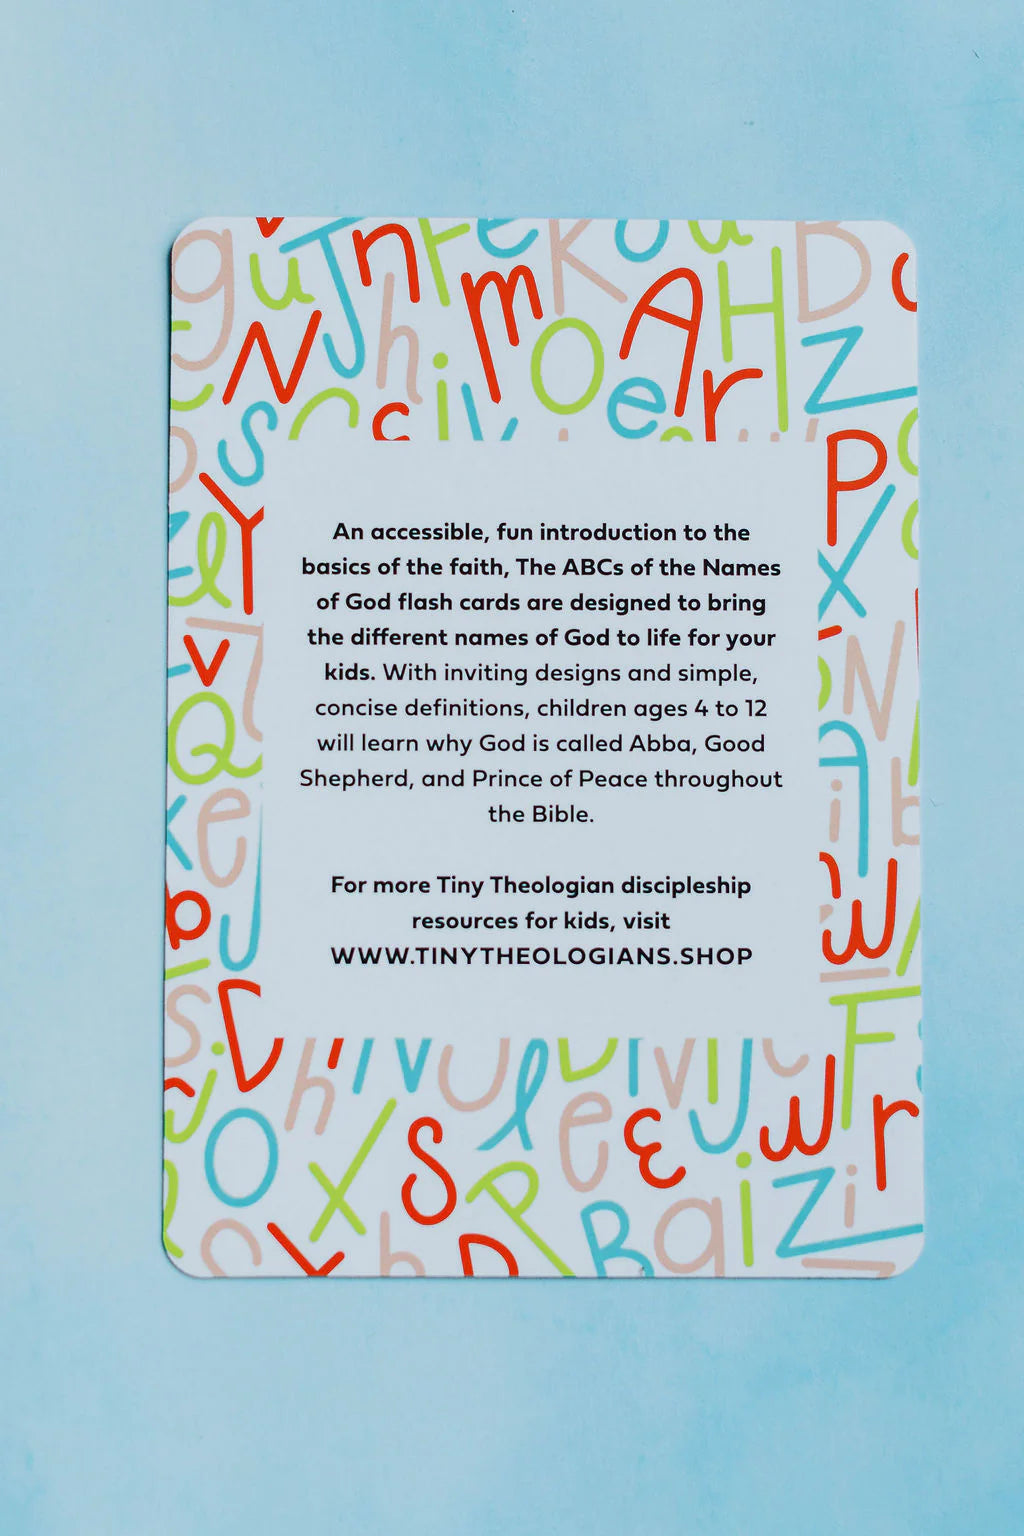 An accessible, fun introduction to the
basics of the faith, The ABCs of the Names
of God flash cards are designed to bring
the different names of God to life for your
kids. With inviting designs and simple,
concise definitions, children ages 4 to 12
will learn why God is called Abba, Good
Shepherd, and Prince of Peace throughout
the Bible.
For more Tiny Theologian discipleship
resources for kids, visit
WWW.TINYTHEOLOGIANS.SHOP